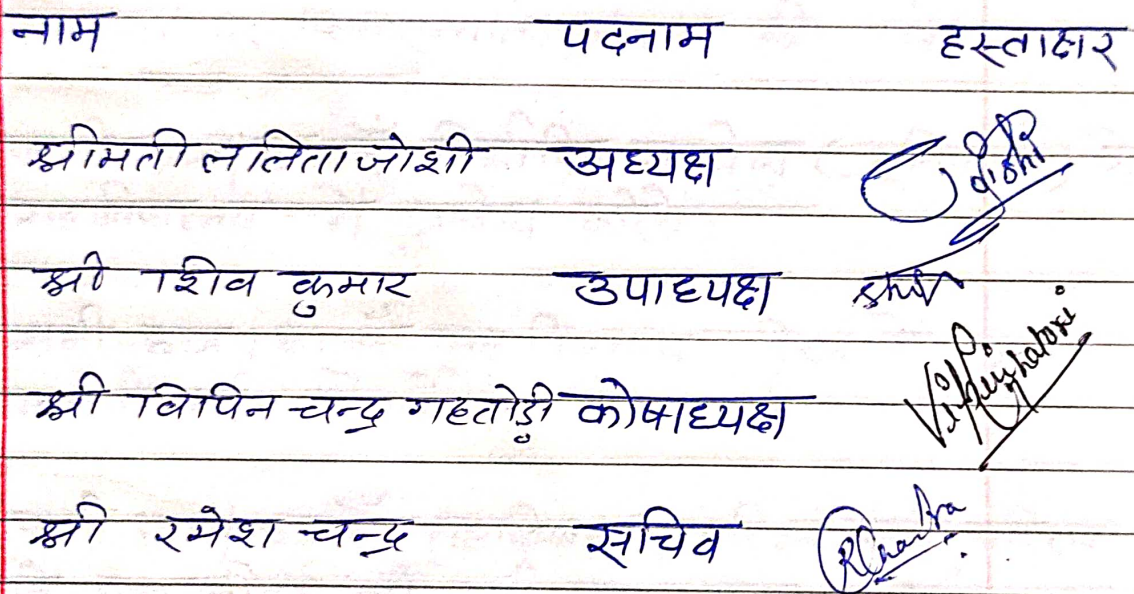 नाम पदनाम हस्ताक्षर
श्रीमती ललिता जोशी अध्यक्ष Joshi
श्री शिव कुमार उपाध्यक्ष Shiv
श्री विपिन चन्द्र गहतोड़ी कोषाध्यक्ष
श्री रमेश चन्द्र सचिव RChandra